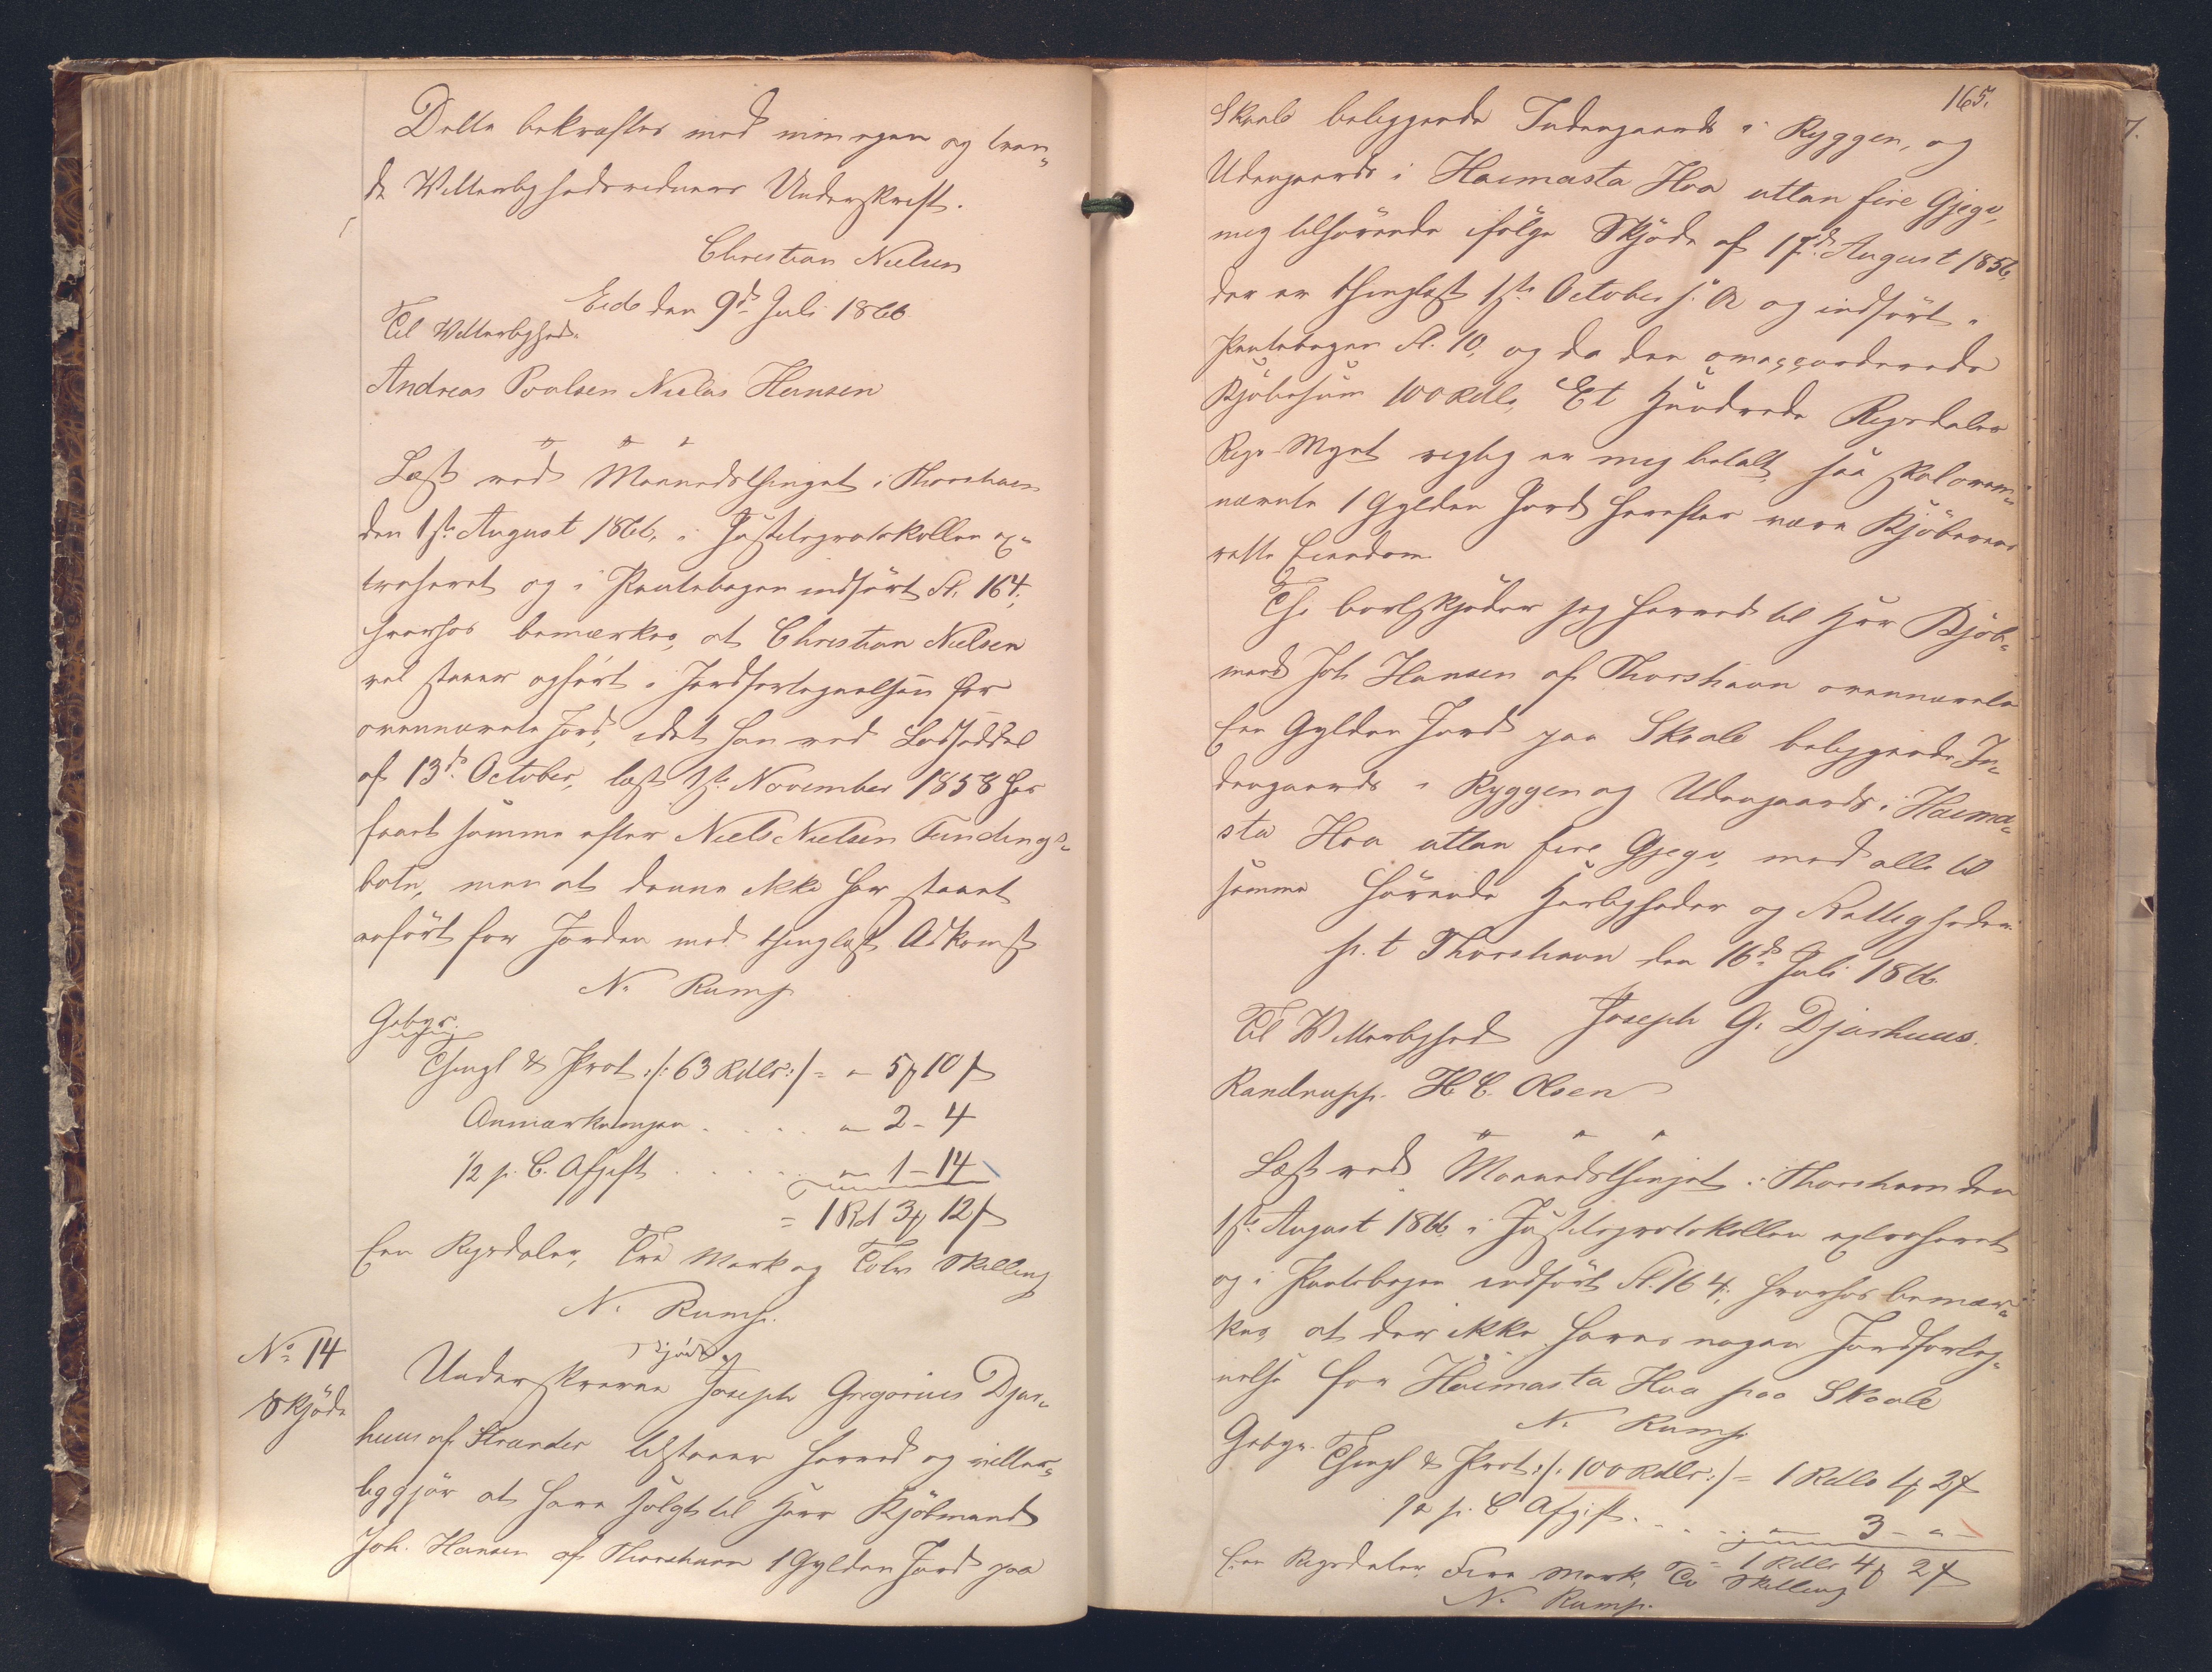 Dette bekræftes med min egen og tven„
de Vitterlighedsvidners Underskrift.
Christian Nielsen
Eide den 9de Juli 1866
Til Vitterlighed.
Andreas Poulsen Niclas Hansen
Læst ved Maanedsthinget i Thorshavn
den 1ste August 1866, i Justitsprotokollen ex„
traheret og i Pantebogen indført Fl. 164;
hvorhos bemærkes, at Christian Nielsen
vel staaer opført i Jordfortegnelsen for
ovennævnte Jord, idet han ved Lodseddel
af 13de October, læst 1ste November 1858 har
faaet samme efter Niels Nielsen Fundings„
botn, men at denne ikke har staaet
anført for Jorden med thinglæst Adkomst
N. Rump
Gebyr.
Thingl & Prot :/: 63 Rdlr :/ = „ 5 ₰ 10 s
Anmærkningen . . . . „ 2 - 4
1/2 p. C. Afgift . . . . . „ 1 - 14
= 1 Rd 3 ₰ 12 s
Een Rigsdaler, Tre Mark og Tolv Skilling
N. Rump.
No 14
Skjøde
Skjøde
Underskrevne Joseph Gregorius Djur„
huus af Strænder tilstaaer herved og vitter„
liggjør at have solgt til Herr Kjøbmand
Joh. Hansen af Thorshavn 1 Gylden Jord paa
165.
Skaale beliggende Indengaards i Ryggen, og
Udengaards i Haimasta Hva uttan fire Gjegv,
mig tilhørende ifølge Skjøde af 17de August 1856,
der er thinglæst 1ste October s. A og indført i
Pantebogen Fl. 10, og da den omaccorderede
Kjøbesum 100 Rdlr, Et Hundrede Rigsdaler
Rigs Mynt rigtig er mig betalt, saa skal oven„
nævnte 1 Gylden Jord herefter være Kjøberens
rette Eiendom.
Thi bortskjøder jeg herved til Herr Kjøb„
mand Joh Hansen af Thorshavn ovennævnte
Een Gylden Jord paa Skaale beliggende In„
dengaards i Ryggen og Udengaards i Haima„
sta Hva uttan fire Gjegv, med alle til
samme hørende Herligheder og Rettigheder.
p. t Thorshavn den 16de Juli 1866
Til Vitterlighed Joseph G. Djurhuus.
Randrupp. H. C. Olsen
Læst ved Maanedsthinget i Thorshavn den
1ste August 1866, i Justitsprotokollen extraheret
og i Pantebogen indført Fl. 164; hvorhos bemær„
kes, at der ikke haves nogen Jordforteg„
nelse for Haimasta Hva paa Skaale
N. Rump
Gebyr. Thingl & Prot :/: 100 Rdlr :/ = 1 Rdlr 1 ₰ 2 s
1/2 p. C Afgift . . . . . „ 3 - „ -
= 1 Rdlr 4 ₰ 2 s
Een Rigsdaler, Fire Mark, To Skilling
N. Rump.